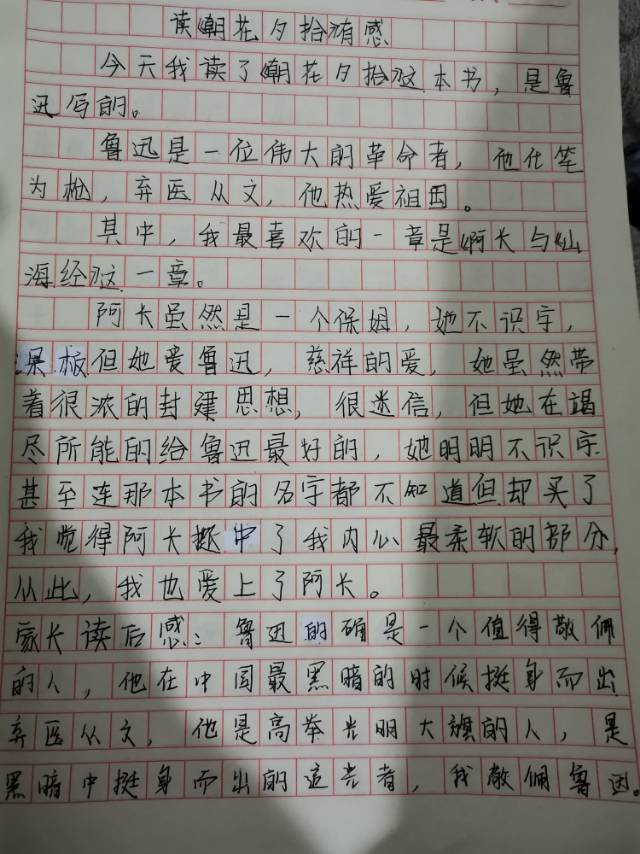 读《朝花夕拾》有感
今天我读了《朝花夕拾》这本书，是鲁
迅写的。
鲁迅是一位伟大的革命者，他化笔
为枪，弃医从文，他热爱祖国。
其中，我最喜欢的一章是《阿长与《山
海经》这一章。
阿长虽然是一个保姆，她不识字，
呆板但她爱鲁迅，慈祥的爱，她虽然带
着很浓的封建思想，很迷信，但她在竭
尽所能的给鲁迅最好的，她明明不识字
甚至连那本书的名字都不知道但却买了
我觉得阿长抓中了我内心最柔软的部分，
从此，我也爱上了阿长。
家长读后感：鲁迅的确是一个值得敬佩
的人，他在中国最黑暗的时候挺身而出
弃医从文，他是高举光明大旗的人，是
黑暗中挺身而出的追光者，我敬佩鲁迅。